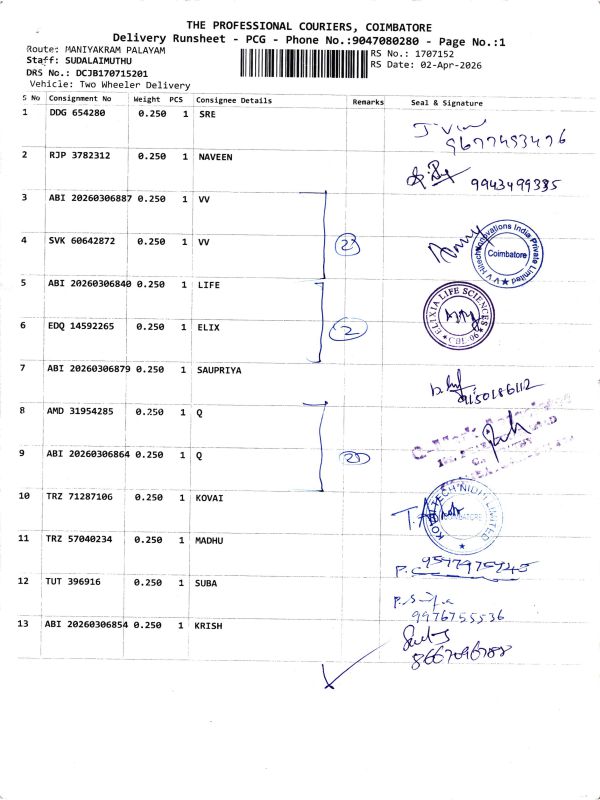 THE PROFESSIONAL COURIERS, COIMBATORE
Delivery Runsheet - PCG - Phone No.:9047080280 - Page No.:1
Route: MANIYAKRAM PALAYAM
RS No.: 1707152
Staff: SUDALAIMUTHU
RS Date: 02-Apr-2026
DRS No.: DCJB170715201
Vehicle: Two Wheeler Delivery
S No Consignment No Weight PCS Consignee Details Remarks Seal & Signature
1 DDG 654280 0.250 1 SRE
9677493476
2 RJP 3782312 0.250 1 NAVEEN
9943499335
3 ABI 20260306887 0.250 1 VV
4 SVK 60642872 0.250 1 VV
2
V V Hitech Innovations India Private Limited
Coimbatore
5 ABI 20260306840 0.250 1 LIFE
6 EDQ 14592265 0.250 1 ELIX
2
ELIXIA LIFE SCIENCES
CBE-06
7 ABI 20260306879 0.250 1 SAUPRIYA
9150186112
8 AMD 31954285 0.250 1 Q
9 ABI 20260306864 0.250 1 Q
2
10 TRZ 71287106 0.250 1 KOVAI
COIMBATORE
11 TRZ 57040234 0.250 1 MADHU
12 TUT 396916 0.250 1 SUBA
9976755536
13 ABI 20260306854 0.250 1 KRISH
8667096788